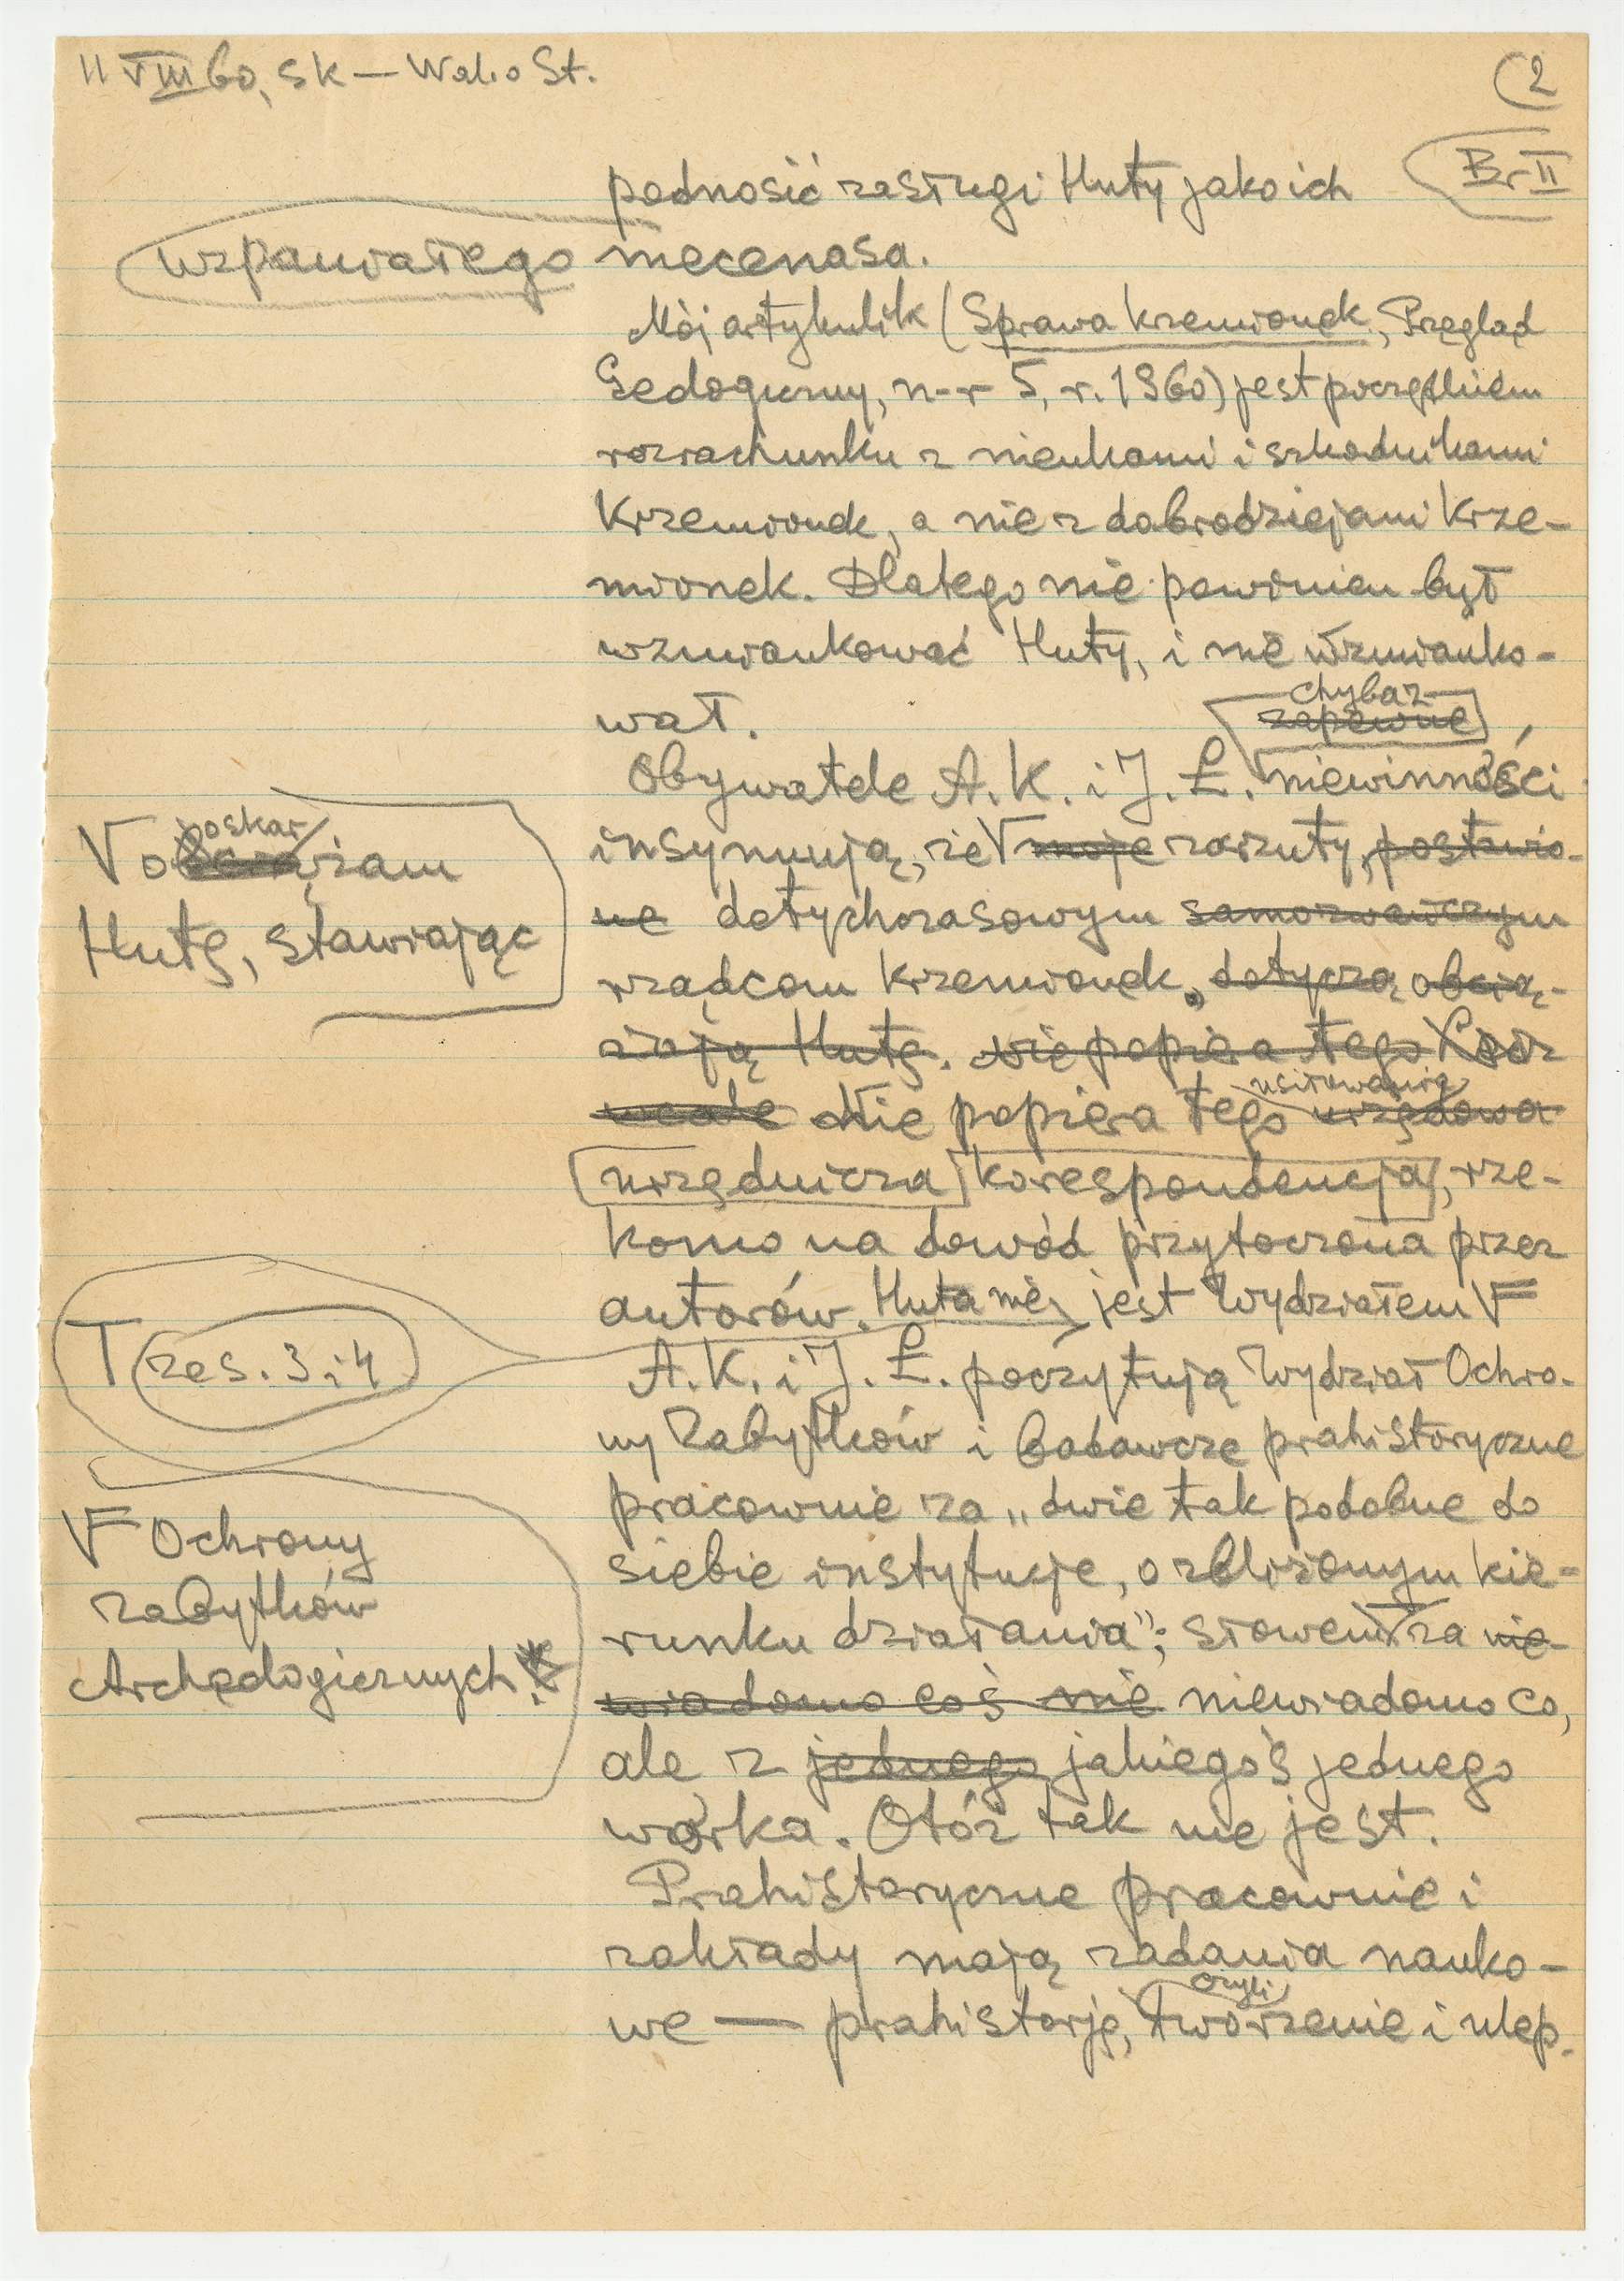 11 VIII 60, SK — Walio St.
(2
Br II
podnosić zasługi Huty jako ich
wspaniałego mecenasa.
Mój artykulik (Sprawa Krzemionek, Przegląd
Geologiczny, n-r 5, r. 1960) jest początkiem
rozrachunku z nieukami i szkodnikami
Krzemionek, a nie z dobrodziejami Krze-
mionek. Dlatego nie powinien był
wzmiankować Huty, i nie wzmianko-
wał.
chyba z
zapewne
Obywatele A. K. i J. Ł. niewinności
insynuują, że V moje zarzuty, postawio-
ne dotychczasowym samozwańczym
rządcom Krzemionek, dotyczą obcią-
żają Hutę. nie popiera tego
wcale Nie popiera tego urzędowa
usiłowania
urzędnicza korespondencja, rze-
komo na dowód przytoczona przez
autorów. Huta nie jest Wydziałem V
A. K. i J. Ł. poczytują Wydział Ochro-
ny Zabytków i badawcze prahistoryczne
pracownie za „dwie tak podobne do
siebie instytucje, o zbliżonym kie-
runku działania"; słowem za nie-
wiadomo coś nie niewiadomo co,
ale z jednego jakiegoś jednego
worka. Otóż tak nie jest.
Prahistoryczne pracownie i
zakłady mają zadania nauko-
we — prahistorję, czyli tworzenie i ulep-
V oskarżam
Hutę, stawiając
T zes. 3 i 4
V Ochrony
Zabytków
Archeologicznych